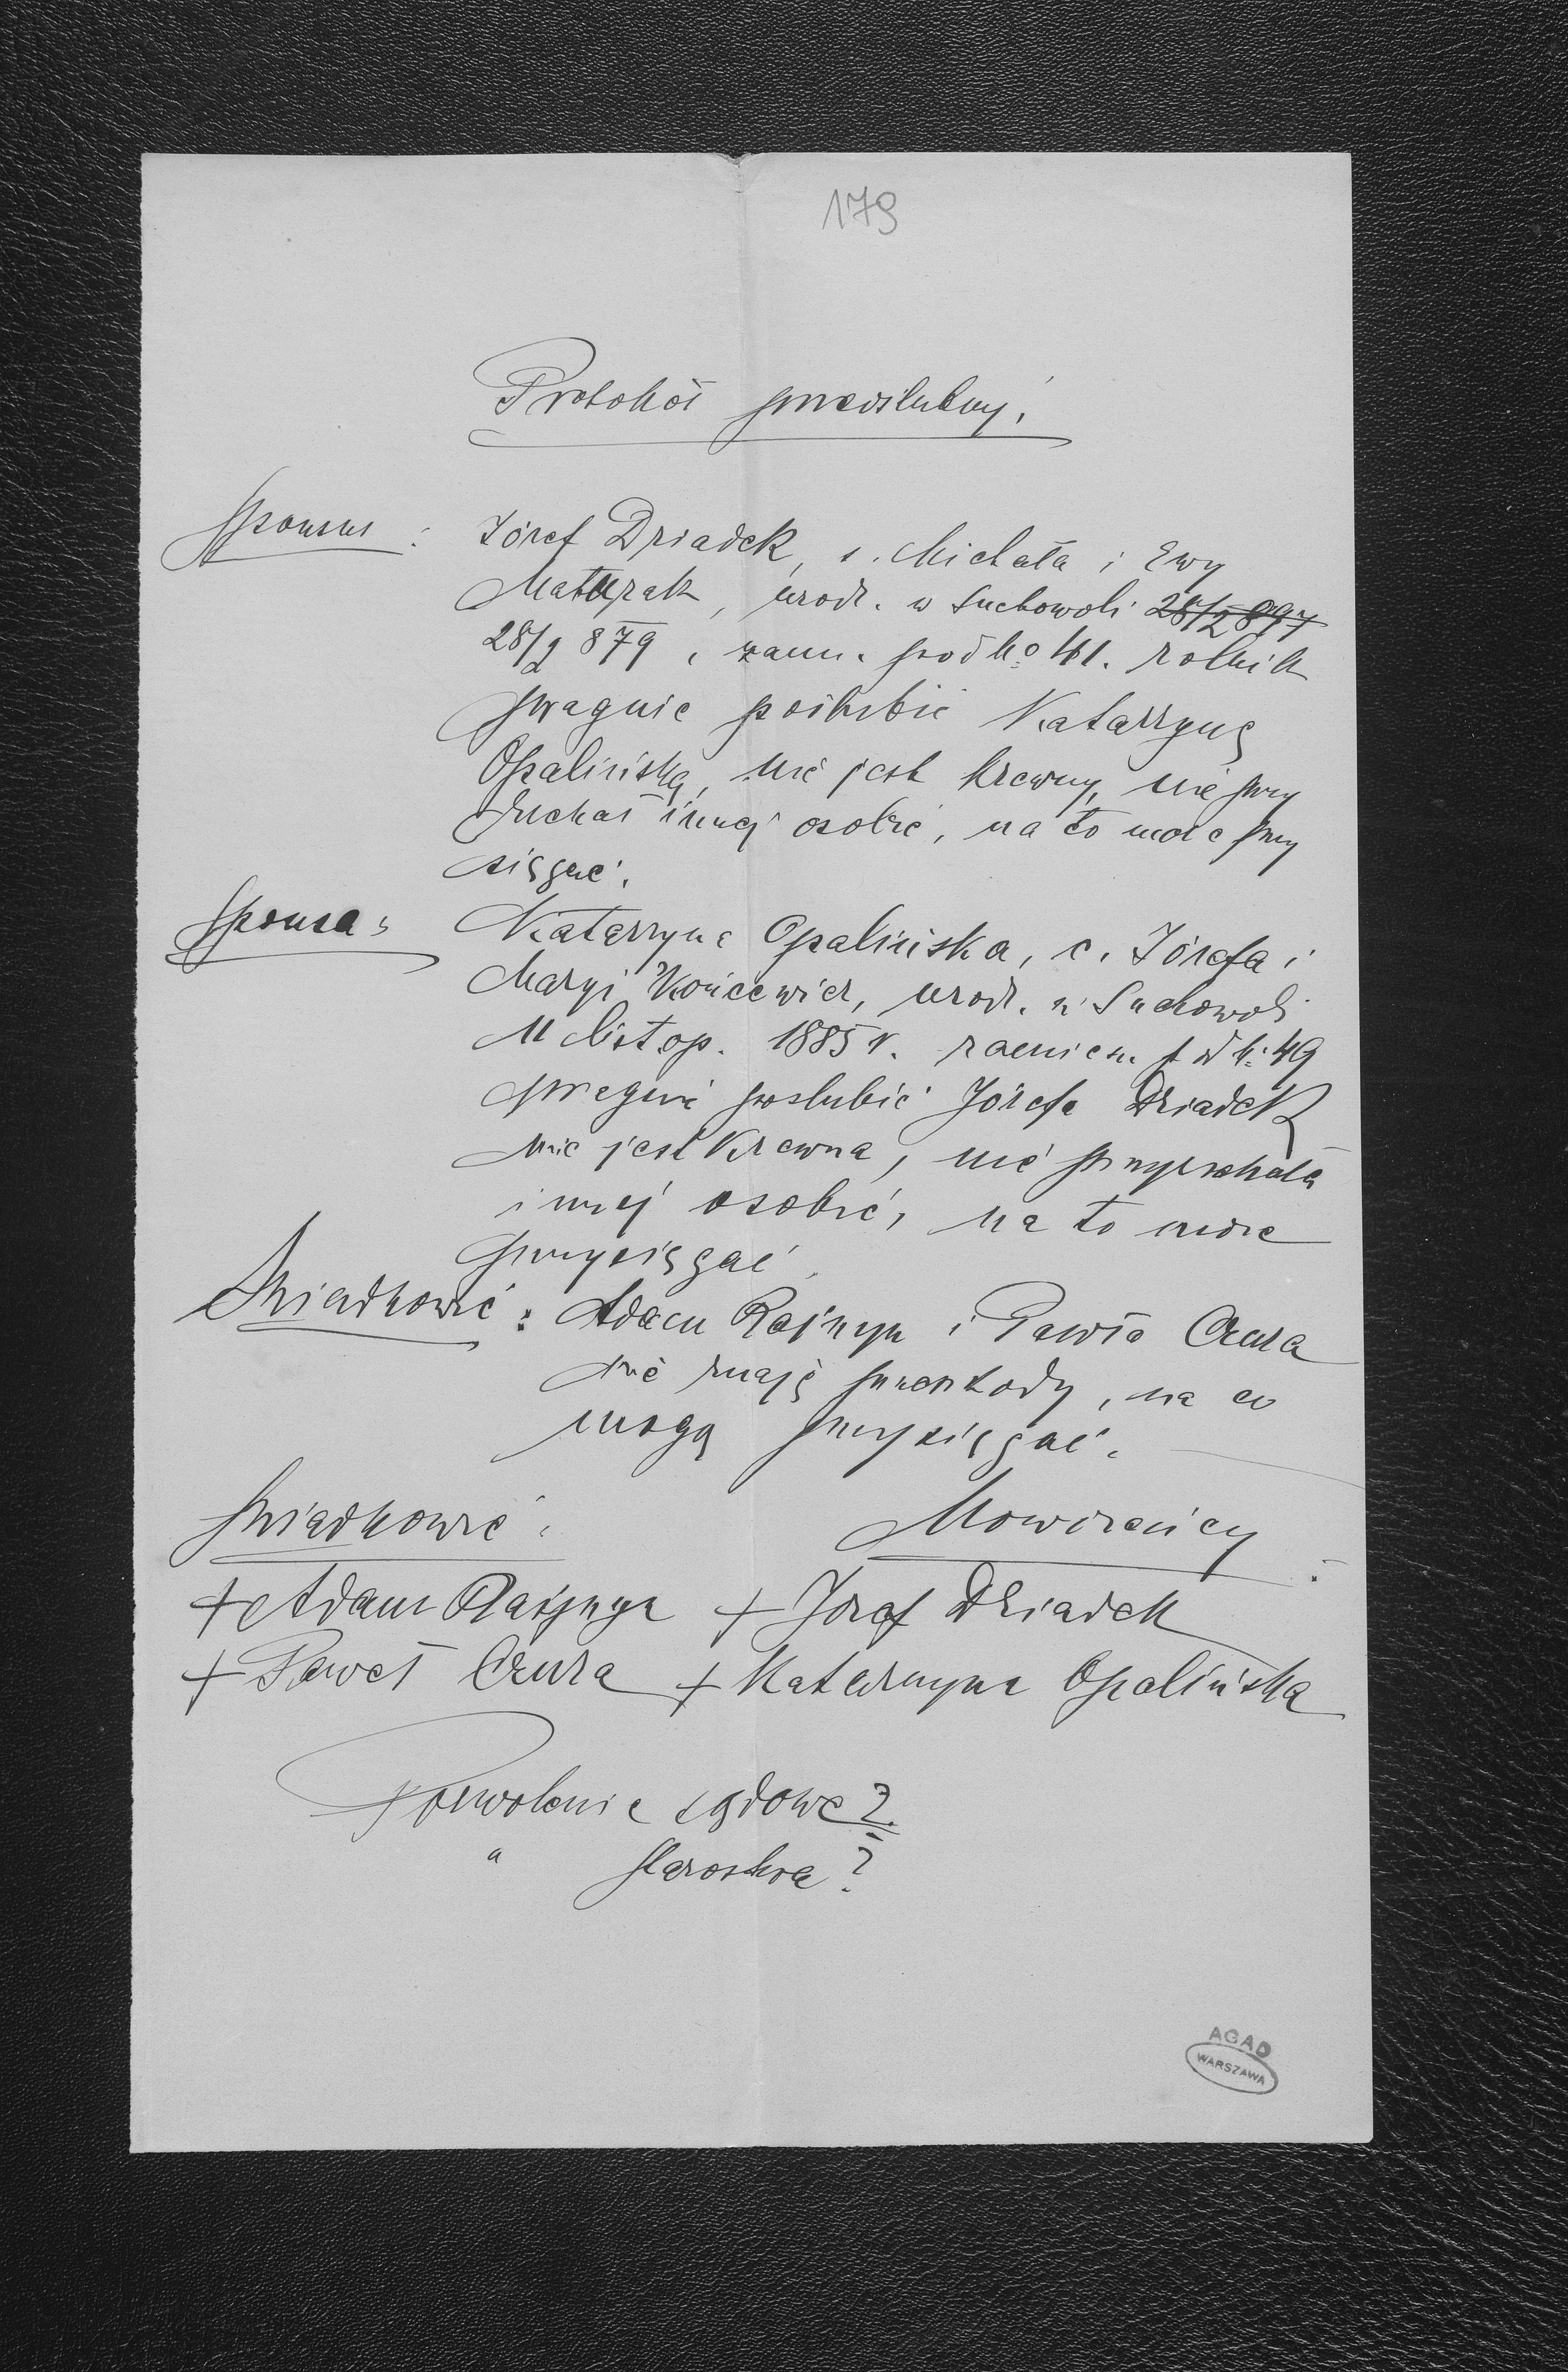 179
Protokół przedślubny.
Sponsus: Józef Dziadek, s. Michała i Ewy
Matuszak, urodz. w Suchowoli 28/2 897
28/2 879, zam. pod No 41. rolnik
pragnie poślubić Katarzynę
Opalińską, nie jest krewny, nie przy
innej osobie, na to może przy
sięgać.
Sponsa: Katarzyna Opalińska, c. Józefa i
Maryi Końcewicz, urodz. w Suchowoli
11 listop. 1885 r. zamieszk. pod N. 49
pragnie poślubić Józefa Dziadek
nie jest krewna, nie przyrzekała
innej osobie, na to może
przysięgać.
Świadkowie: Adam i Pawła Czura
nie znają przeszkody, na co
mogą przysięgać.
Świadkowie: Nowożeńcy:
+ Adam + Józef Dziadek
+ Paweł Czura + Katarzyna Opalińska
Pozwolenie sądowe?
" starostwa?
AGAD
WARSZAWA